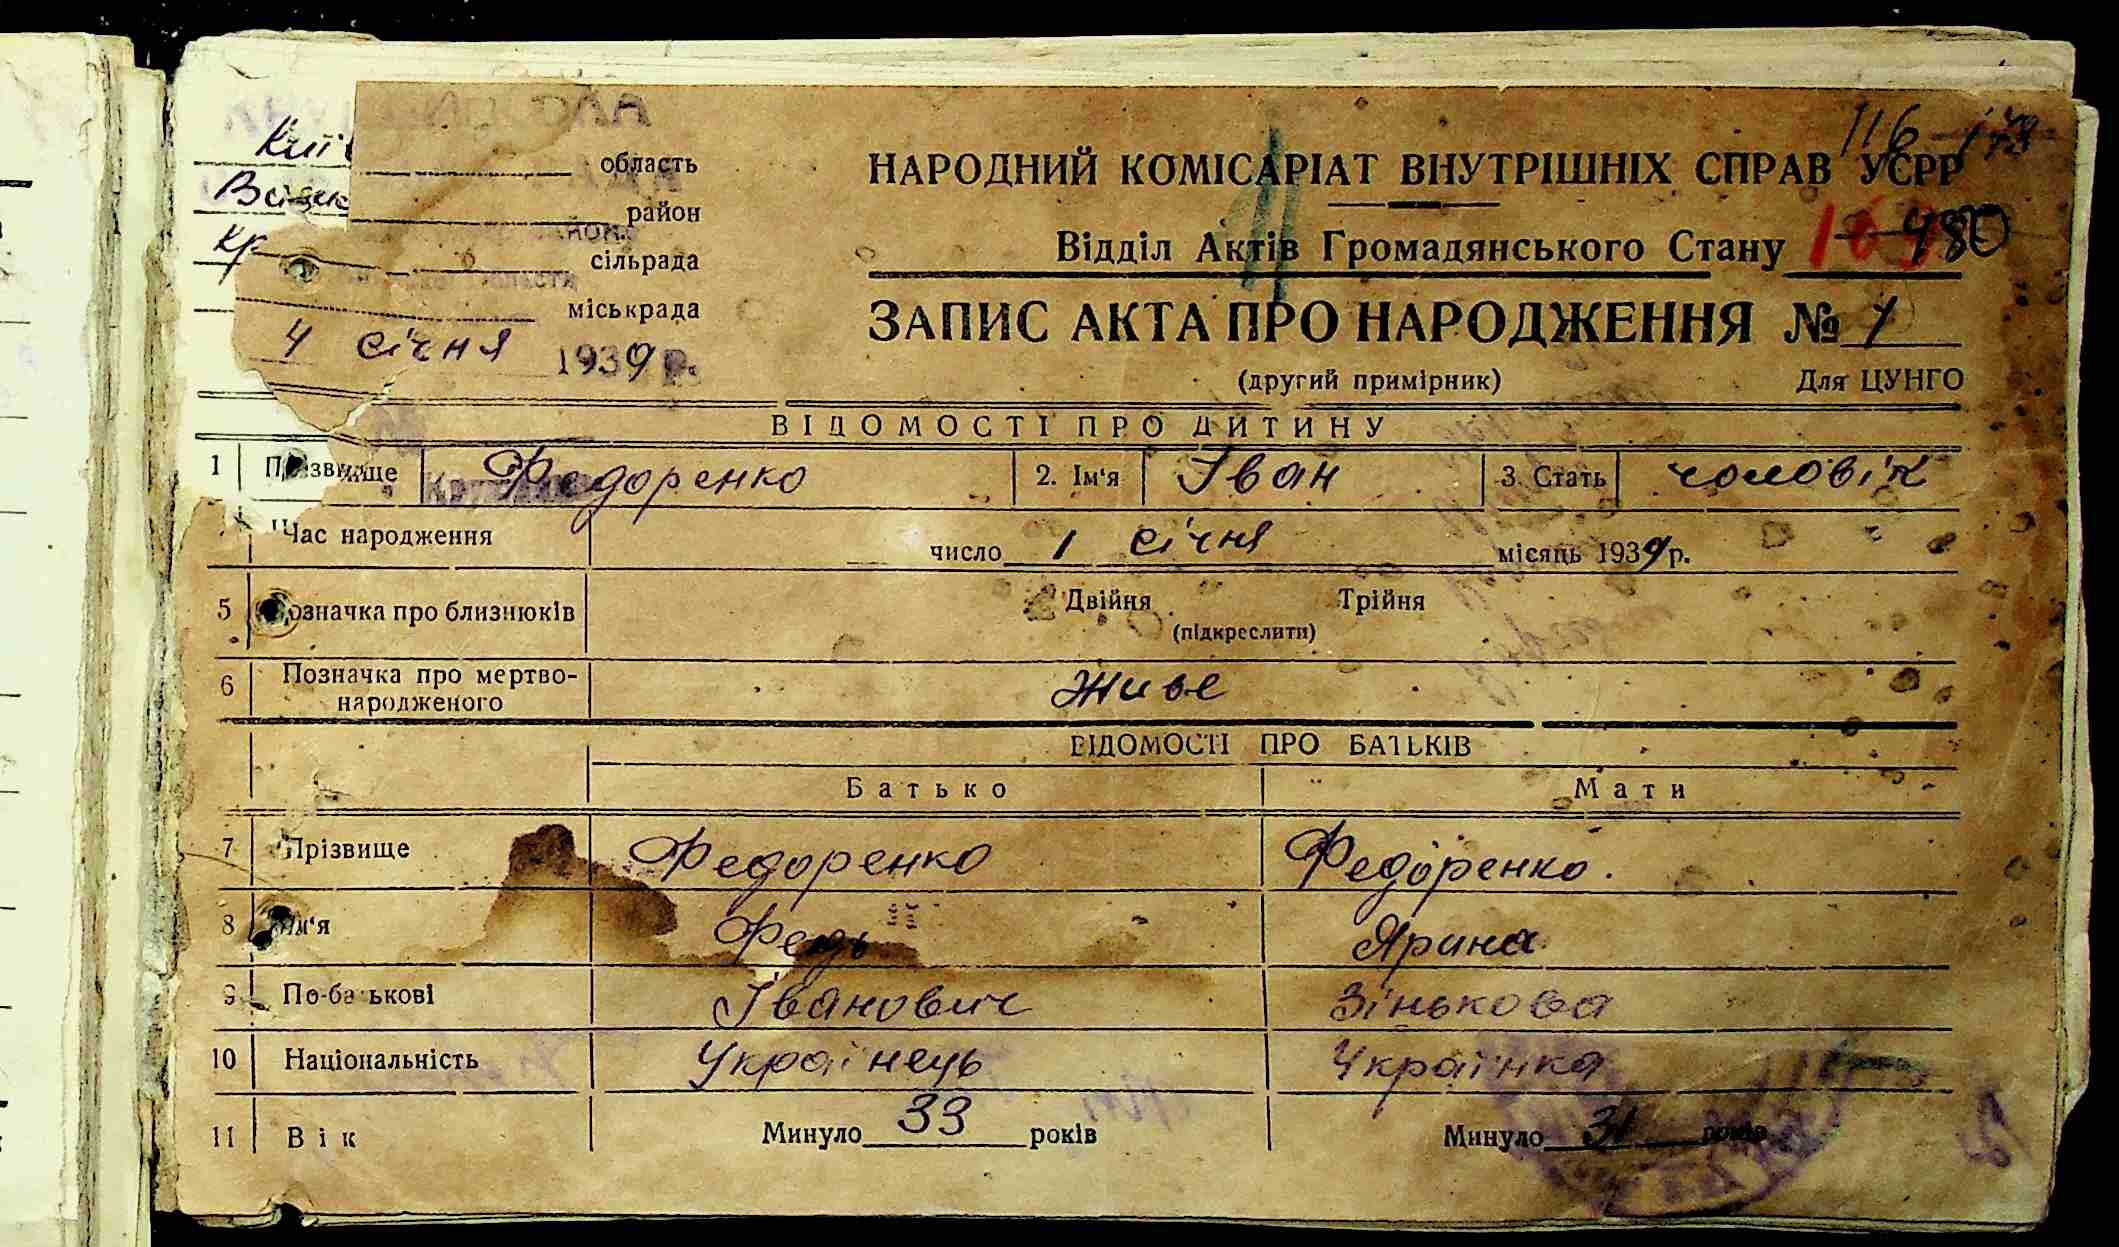 116
область
район
Кр
сільрада
міськрада
4 січня 1939 р.
НАРОДНИЙ КОМІСАРІАТ ВНУТРІШНІХ СПРАВ УСРР
Відділ Актів Громадянського Стану 480
ЗАПИС АКТА ПРО НАРОДЖЕННЯ № 1
(другий примірник) Для ЦУНГО
ВІДОМОСТІ ПРО ДИТИНУ
1 Прізвище Федоренко 2. Ім'я Іван 3. Стать чоловік
Час народження число 1 січня місяць 1939 р.
5 Позначка про близнюків Двійня Трійня
(підкреслити)
6 Позначка про мертво-
народженого Живе
ВІДОМОСТІ ПРО БАТЬКІВ
Батько Мати
7 Прізвище Федоренко Федоренко.
8 Ім'я Федь Ярина
9 По-батькові Іванович Зінькова
10 Національність Українець Українка
11 Вік Минуло 33 років Минуло 31 років